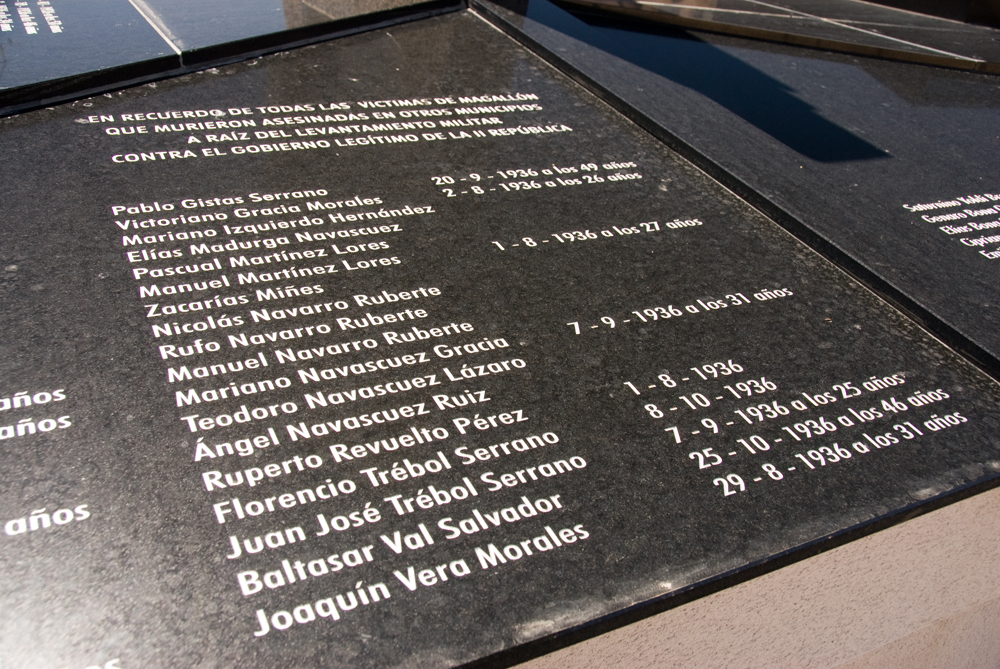 EN RECUERDO DE TODAS LAS VICTIMAS DE MAGALLÓN
QUE MURIERON ASESINADAS EN OTROS MUNICIPIOS
A RAÍZ DEL LEVANTAMIENTO MILITAR
CONTRA EL GOBIERNO LEGÍTIMO DE LA II REPÚBLICA
Pablo Gistas Serrano 20 - 9 - 1936 a los 49 años
Victoriano Gracia Morales 2 - 8 - 1936 a los 26 años
Mariano Izquierdo Hernández
Elías Madurga Navascuez
Pascual Martínez Lores
Manuel Martínez Lores 1 - 8 - 1936 a los 27 años
Zacarías Miñes
Nicolás Navarro Ruberte
Rufo Navarro Ruberte
Manuel Navarro Ruberte
Mariano Navascuez Gracia 7 - 9 - 1936 a los 31 años
Teodoro Navascuez Lázaro
Ángel Navascuez Ruiz
Ruperto Revuelto Pérez 1 - 8 - 1936
Florencio Trébol Serrano 8 - 10 - 1936
Juan José Trébol Serrano 7 - 9 - 1936 a los 25 años
Baltasar Val Salvador 25 - 10 - 1936 a los 46 años
Joaquín Vera Morales 29 - 8 - 1936 a los 31 años
años
años
años
Saturnino
Genaro
Elías